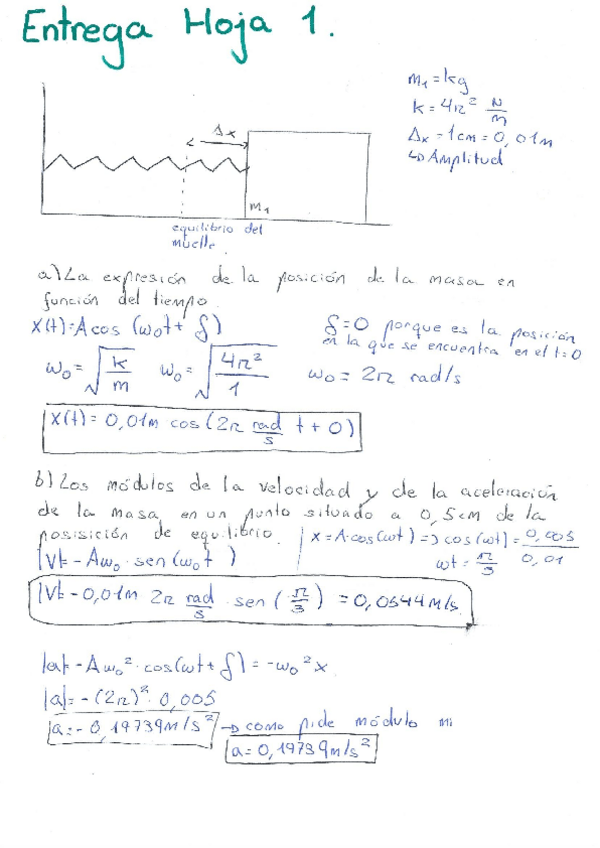 Entrega Hoja 1.
m₁ = kg
k = 4π² N/m
Δx = 1cm = 0,01m
↳ Amplitud
Δx
m₁
equilibrio del
muelle
a) La expresión de la posición de la masa en
función del tiempo.
X(t) = A cos (ω₀t + δ)
δ = 0 porque es la posición
en la que se encuentra en el t=0
ω₀ = √(k/m) ω₀ = √(4π²/1) ω₀ = 2π rad/s
X(t) = 0,01m cos (2π rad/s t + 0)
b) Los módulos de la velocidad y de la aceleración
de la masa en un punto situado a 0,5cm de la
posisición de equilibrio.
x = A·cos(ωt) => cos(ωt) = 0,005/0,01
ωt = π/3
|V| = - Aω₀ · sen (ω₀t )
|V| = - 0,01m 2π rad/s · sen (π/3) = 0,0544m/s.
|a| = - Aω₀² · cos(ωt + δ) = -ω₀² x
|a| = - (2π)² · 0,005
|a = - 0,19739m/s² → como pide módulo
a = 0,19739m/s²